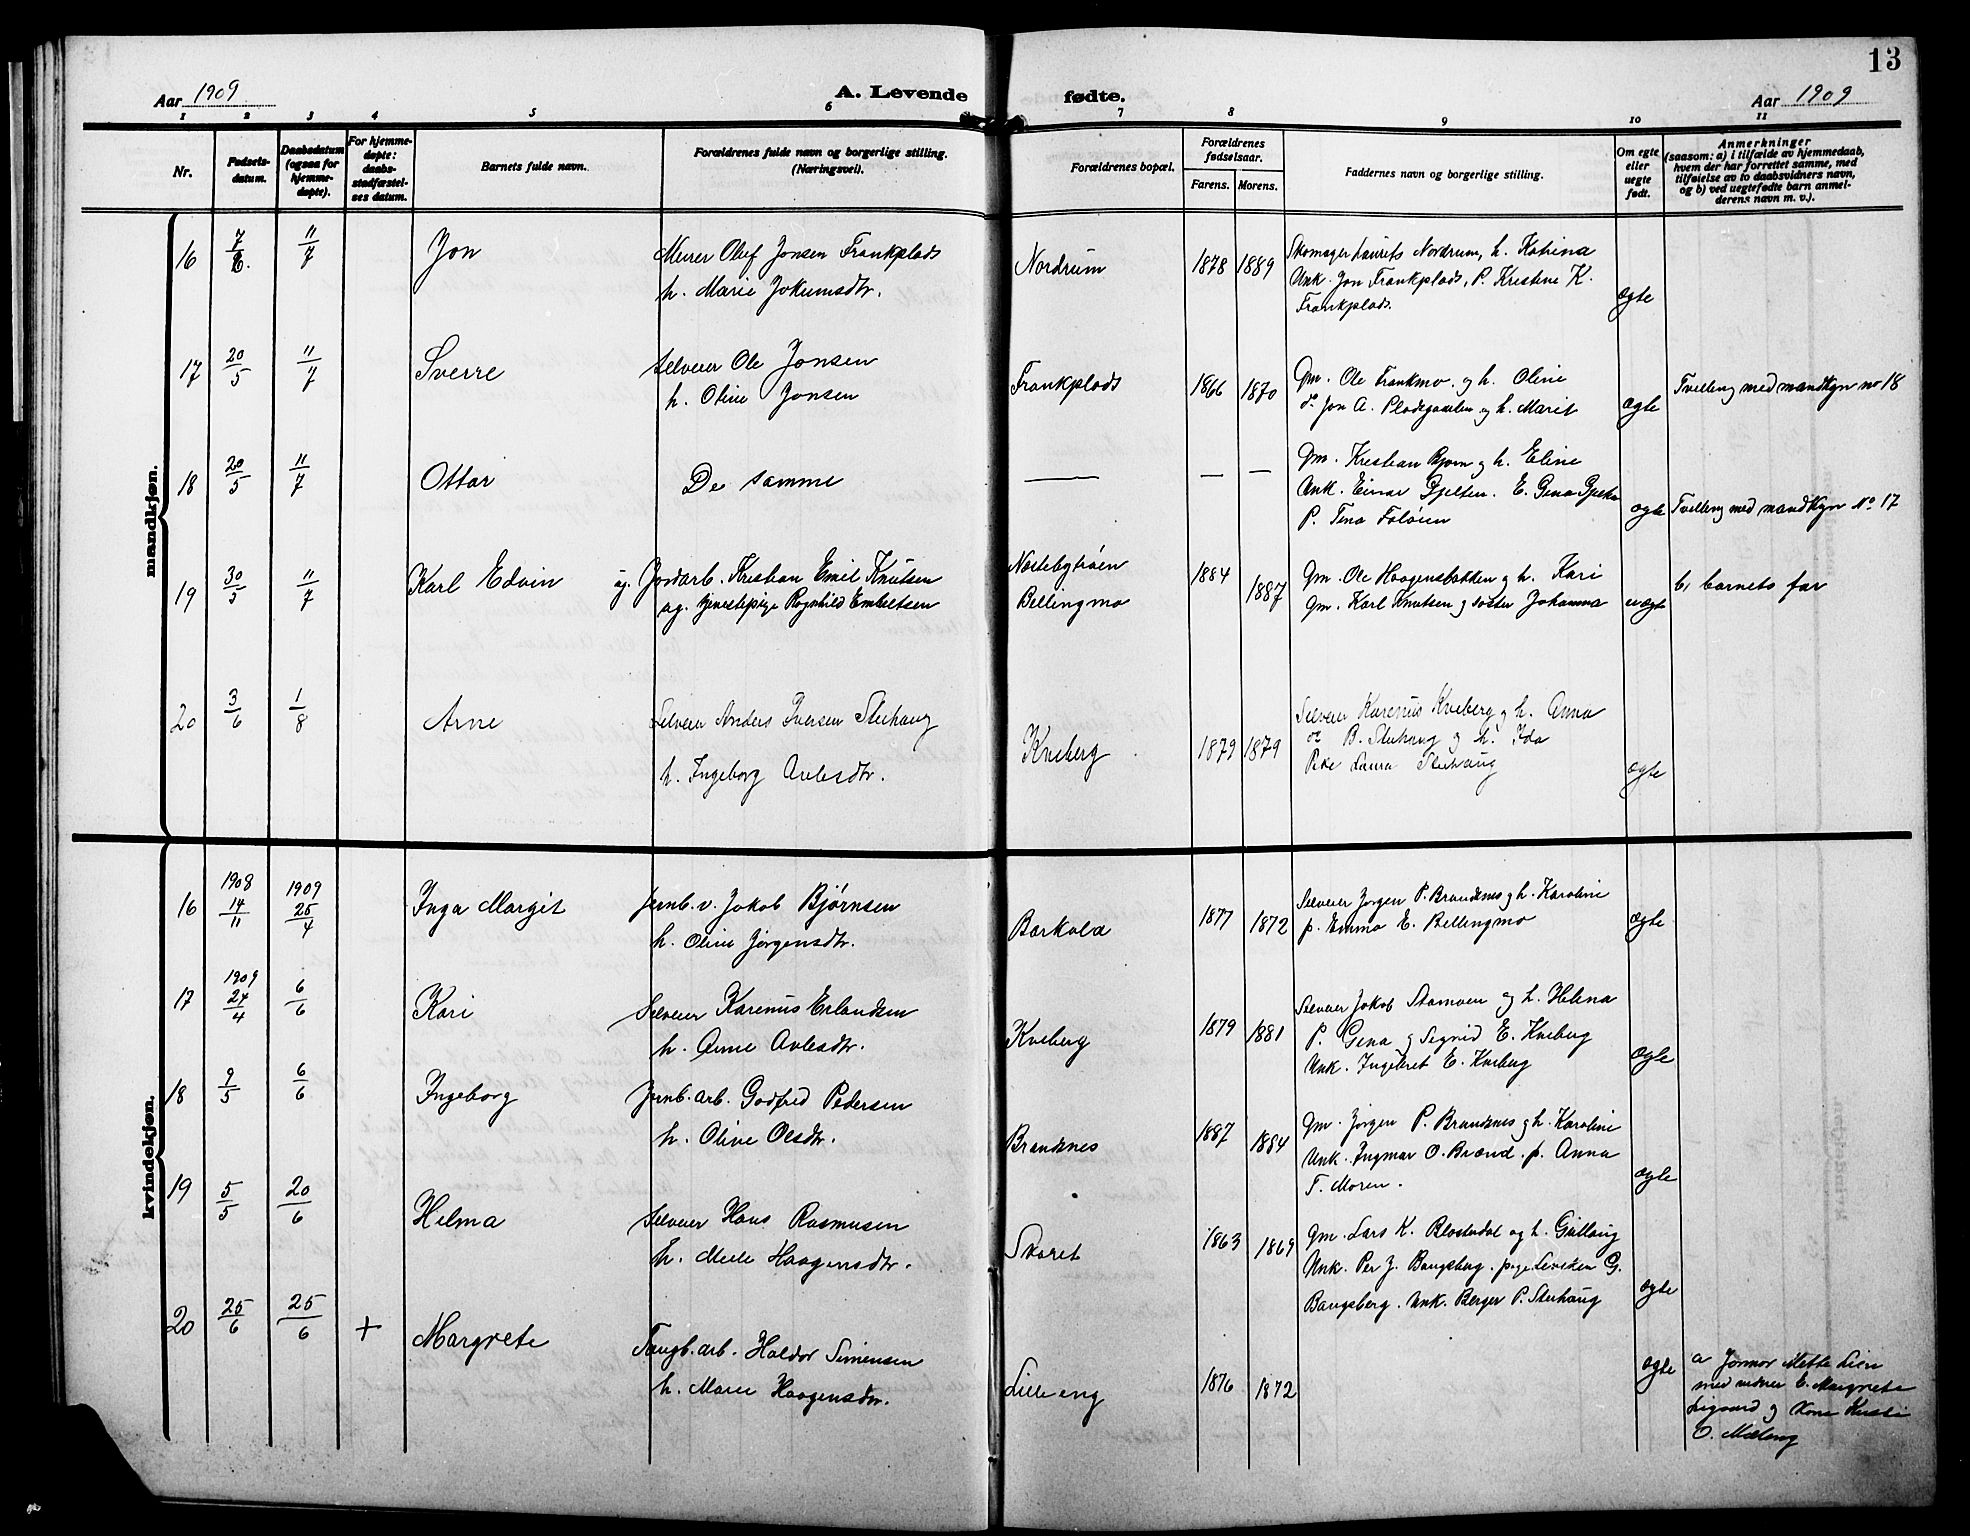 13
Aar 1909
A. Levende fødte.
Aar 1909
1 2 3 4 5 6 7 8 9 10 11
Nr.
Fødsels-
datum.
Daabsdatum
(ogsaa for
hjemme-
døpte).
For hjemme-
døpte:
daabs-
stadfæstel-
ses datum.
Barnets fulde navn.
Forældrenes fulde navn og borgerlige stilling.
(Næringsvei).
Forældrenes bopæl.
Forældrenes
fødselsaar.
Farens. Morens.
Faddernes navn og borgerlige stilling.
Om egte
eller
uegte
født.
Anmerkninger
(saasom: a) i tilfælde av hjemmedaab,
hvem der har forrettet samme, med
tilføielse av to daabsvidners navn,
og b) ved uegtefødte barn anmel-
derens navn m. v.).
mandkjøn.
16 7/6 11/7 Jon
Meier Oluf Jonsen Frankplads
h. Marie Jokumsdtr.
Nordrum 1878 1889
Skomager Laurits Nordrum, h. Katrina
Unk. Jon Frankplads, P. Kristine K.
Frankplads.
ægte
17 20/5 11/7 Sverre
Selveier Ole Jonsen
h. Oline Jonsen
Frankplads 1866 1870
Gm. Ole Frankmo og h. Oline
do Jon A. Pladsgaarden og h. Marit
ægte
Tvilling med mandkjøn no 18
18 20/5 11/7 Ottar
De samme
— — —
Gm. Kristian Bjorn og h. Eline
Unk. Einar Gjelten. E. Gina Gjelten
P. Tina Foløien
ægte
Tvilling med mandkjøn No 17
19 30/5 11/7 Karl Edvin
ug. Jordarb. Kristian Emil Knutsen
ug. tjenestepige Ragnhild Embretsen
Nordebytrøen
Bellingmo
1884 1887
Gm. Ole Haagensbakken og h. Kari
Gm. Karl Knutsen og søster Johanna
uægte
b, barnets far
20 3/6 1/8 Arne
Selveier Anders Iversen Stuhaug
h. Ingeborg Avlesdtr.
Kveberg 1879 1879
Selveier Karenus Kveberg og h. Anna
B. Stuhaug og h. Ida
Pike Laura Stuhaug
ægte
kvindekjøn.
16 1908 14/11 1909 25/4 Inga Margit
Jernb.v. Jakob Bjørnsen
h. Oline Jørgensdtr.
Barkald 1877 1872
Selveier Jørgen P. Brandsnes og h. Karoline
p. Emma E. Bellingmo
ægte
17 1909 24/4 6/6 Kari
Selveier Karenus Erlandsen
h. Anne Avlesdtr.
Kveberg 1879 1881
Selveier Jakob Stamoen og h. Helena
P. Gena og Sigrid E. Kveberg
Unk. Ingebret E. Kveberg
ægte
18 9/5 6/6 Ingeborg
Jernb.arb. Godfred Pedersen
h. Olive Olsdtr.
Brandsnes 1887 1884
Gm. Jørgen P. Brandsnes og h. Karoline
Unk. Ingmar O. Brænd. p. Anna
T. Moren.
ægte
19 5/5 20/6 Helma
Selveier Hans Rasmusen
h. Mede Haagensdtr.
Skaret 1863 1869
Gm. Lars K. Blostrdal og h. Gullaug
Unk. Per J. Bangsberg. pige Leviken G.
Bangsberg. Unk. Berger P. Stuhaug
ægte
20 25/6 25/6 + Margrete
Taugb.arb. Haldor Simensen
h. Marie Haagensdtr.
Lilleeng 1876 1872
ægte
a Jormor Mette Lien
med vidner E. Margrete
Ligaard og Kone Kirsti
O. Mæleng